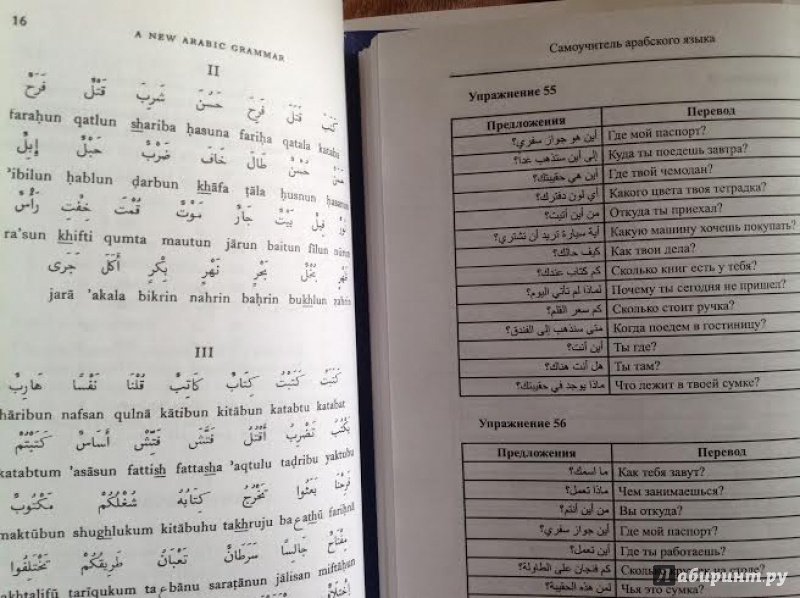 16
A NEW ARABIC GRAMMAR
II
كَتَبَ قَتَلَ فَرِحَ حَسُنَ شَرِبَ قَتْلٌ فَرَحٌ
faraḥun qatlun shariba ḥasuna fariḥa qatala kataba
حَسَنٌ حُسْنٌ طَالَ خَافَ ضَرْبٌ حَبْلٌ إِبِلٌ
'ibilun ḥablun ḍarbun khāfa ṭāla ḥusnun ḥasanun
نُورٌ فِيلٌ بَيْتٌ جَارٌ مَوْتٌ قُمْتَ خِفْتِ رَأْسٌ
ra'sun khifti qumta mautun jārun baitun fīlun nūrun
نَهْرٍ بُخْلٌ بَحْرٍ نَهْرٍ بِكْرٍ أَكَلَ جَرَى
jarā 'akala bikrin nahrin baḥrin bukhlun nahrin
III
كَتَبَتْ كَتَبْتُ كِتَابٌ كَاتِبٌ قُلْنَا نَفْسًا هَارِبٌ
hāribun nafsan qulnā kātibun kitābun katabtu katabat
يَكْتُبُ تَضْرِبُ أَقْتُلُ فَتَّشَ فَتِّشْ أَسَاسٌ كَتَبْتُمْ
katabtum 'asāsun fattish fattasha 'aqtulu taḍribu yaktubu
فَرِحْنَا بَعَثُوا تَخْرُجُ كِتَابُهُ شُغْلُكُمْ مَكْتُوبٌ
maktūbun shughlukum kitābuhu takhruju baعathū fariḥnā
مِفْتَاحٌ جَالِسًا سَرَطَانٌ تَعْبَانُ طَرِيقُكُمْ يَخْتَلِفُوا
yakhtalifū ṭarīqukum taعbānu saraṭānun jālisan miftāḥun
Самоучитель арабского языка
Упражнение 55
Предложения Перевод
أين هو جواز سفري؟ Где мой паспорт?
إلى أين ستذهب غدا؟ Куда ты поедешь завтра?
أين هي حقيبتك؟ Где твой чемодан?
أي لون دفترك؟ Какого цвета твоя тетрадка?
من أين أتيت؟ Откуда ты приехал?
أية سيارة تريد أن تشتري؟ Какую машину хочешь покупать?
كيف حالك؟ Как твои дела?
كم كتاب عندك؟ Сколько книг есть у тебя?
لماذا لم تأتي اليوم؟ Почему ты сегодня не пришел?
كم سعر القلم؟ Сколько стоит ручка?
متى سنذهب إلى الفندق؟ Когда поедем в гостиницу?
أين أنت؟ Ты где?
هل أنت هناك؟ Ты там?
ماذا يوجد في حقيبتك؟ Что лежит в твоей сумке?
Упражнение 56
Предложения Перевод
ما اسمك؟ Как тебя зовут?
ماذا تعمل؟ Чем занимаешься?
من أين أنتم؟ Вы откуда?
أين جواز سفري؟ Где мой паспорт?
أين تعمل؟ Где ты работаешь?
كم فنجان على الطاولة؟ Сколько кружек на столе?
لمن هذه الحقيبة؟ Чья это сумка?
Лабиринт.ру